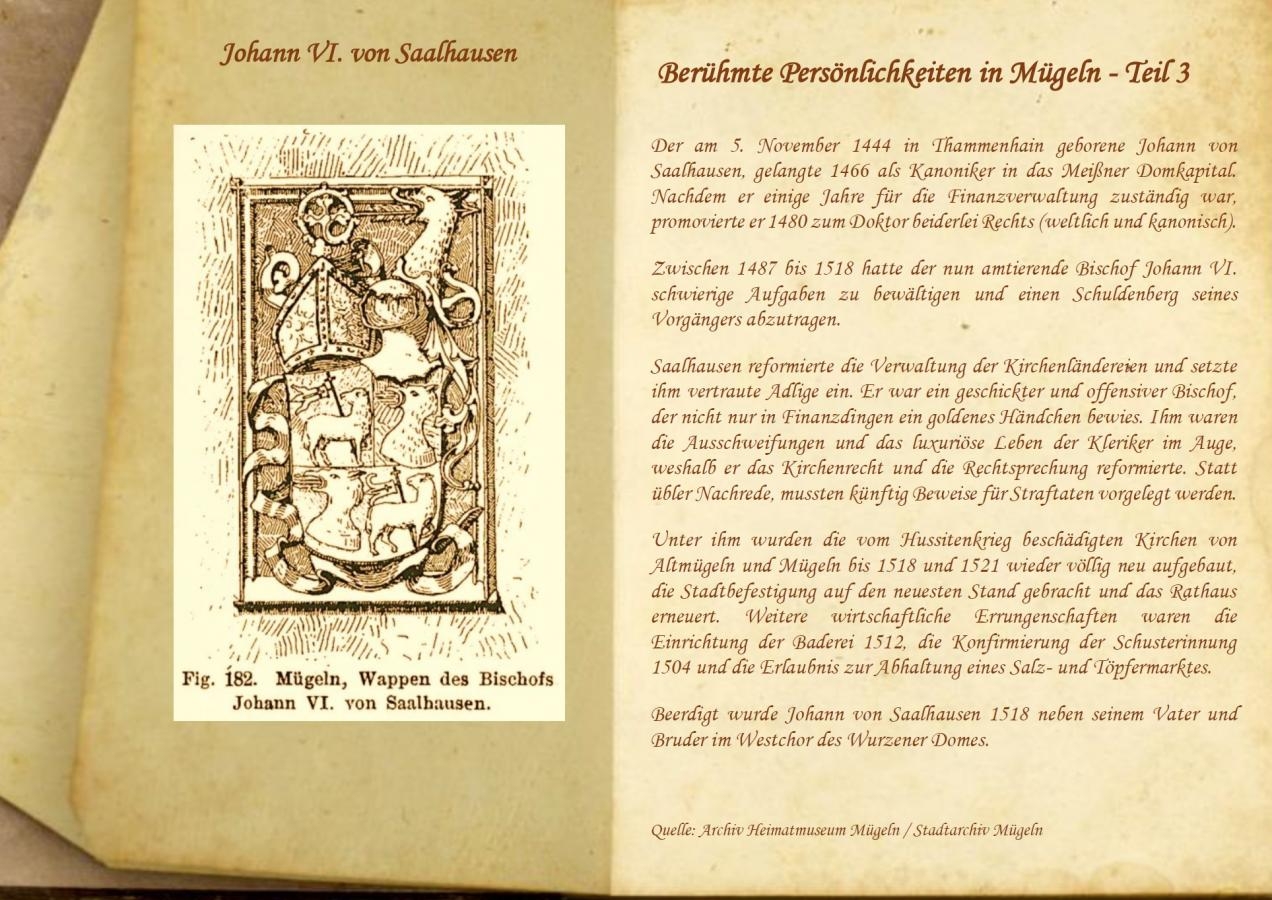 Johann VI. von Saalhausen
Fig. 182. Mügeln, Wappen des Bischofs
Johann VI. von Saalhausen.
Berühmte Persönlichkeiten in Mügeln - Teil 3
Der am 5. November 1444 in Thammenhain geborene Johann von
Saalhausen, gelangte 1466 als Kanoniker in das Meißner Domkapital.
Nachdem er einige Jahre für die Finanzverwaltung zuständig war,
promovierte er 1480 zum Doktor beiderlei Rechts (weltlich und kanonisch).
Zwischen 1487 bis 1518 hatte der nun amtierende Bischof Johann VI.
schwierige Aufgaben zu bewältigen und einen Schuldenberg seines
Vorgängers abzutragen.
Saalhausen reformierte die Verwaltung der Kirchenländereien und setzte
ihm vertraute Adlige ein. Er war ein geschickter und offensiver Bischof,
der nicht nur in Finanzdingen ein goldenes Händchen bewies. Ihm waren
die Ausschweifungen und das luxuriöse Leben der Kleriker im Auge,
weshalb er das Kirchenrecht und die Rechtsprechung reformierte. Statt
übler Nachrede, mussten künftig Beweise für Straftaten vorgelegt werden.
Unter ihm wurden die vom Hussitenkrieg beschädigten Kirchen von
Altmügeln und Mügeln bis 1518 und 1521 wieder völlig neu aufgebaut,
die Stadtbefestigung auf den neuesten Stand gebracht und das Rathaus
erneuert. Weitere wirtschaftliche Errungenschaften waren die
Einrichtung der Baderei 1512, die Konfirmierung der Schusterinnung
1504 und die Erlaubnis zur Abhaltung eines Salz- und Töpfermarktes.
Beerdigt wurde Johann von Saalhausen 1518 neben seinem Vater und
Bruder im Westchor des Wurzener Domes.
Quelle: Archiv Heimatmuseum Mügeln / Stadtarchiv Mügeln